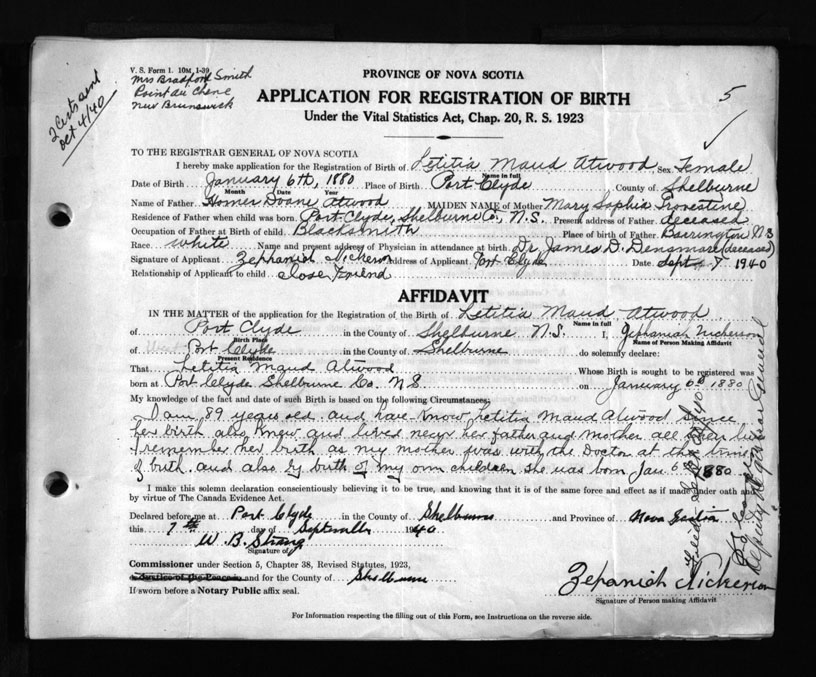 V. S. Form 1. 10M, 1-39
Mrs Bradford Smith
Point du Chene
New Brunswick
2 Certs sent
Oct 4/40
5
PROVINCE OF NOVA SCOTIA
APPLICATION FOR REGISTRATION OF BIRTH
Under the Vital Statistics Act, Chap. 20, R. S. 1923
TO THE REGISTRAR GENERAL OF NOVA SCOTIA
I hereby make application for the Registration of Birth of Letitia Maud Atwood Sex Female
Name in full
Date of Birth January 6th, 1880 Place of Birth Port Clyde County of Shelburne
Month Date Year
Name of Father Homer Doane Atwood MAIDEN NAME of Mother Mary Sophia
Residence of Father when child was born Port Clyde, Shelburne Co., N.S. Present address of Father deceased
Occupation of Father at Birth of Child Blacksmith Place of birth of Father Barrington N S
Race white Name and present address of Physician in attendance at birth Dr James D. Densmore (deceased)
Signature of Applicant Zephaniah Nickerson Address of Applicant Port Clyde Date Sept 7 1940
Relationship of Applicant to child close Friend
AFFIDAVIT
IN THE MATTER of the application for the Registration of the Birth of Letitia Maud Atwood
Name in full
of Port Clyde in the County of Shelburne N.S. I, Zephaniah Nickerson
Birth Place Name of Person Making Affidavit
of Port Clyde in the County of Shelburne do solemnly declare:
Present Residence
That Letitia Maud Atwood Whose Birth is sought to be registered was
born at Port Clyde Shelburne Co. N.S. on January 6th 1880
My knowledge of the fact and date of such Birth is based on the following Circumstances:
I am 89 years old and have know Letitia Maud Atwood since
her birth also knew and lived near her father and mother all their lives
I remember her birth as my mother was with the Doctor at the time
of birth. and also by birth of my own children she was born Jan 6th 1880
I make this solemn declaration conscientiously believing it to be true, and knowing that it is of the same force and effect as if made under oath and
by virtue of The Canada Evidence Act.
Declared before me at Port Clyde in the County of Shelburne and Province of Nova Scotia
this 7th day of September 1940
W. B. Strang
Signature of
Commissioner under Section 5, Chapter 38, Revised Statutes, 1923,
a Justice of the Peace in and for the County of Shelburne
If sworn before a Notary Public affix seal.
Zephaniah Nickerson
Signature of Person making Affidavit
For Information respecting the filling out of this Form, see Instructions on the reverse side.
Filed Sept
Deputy Registrar General